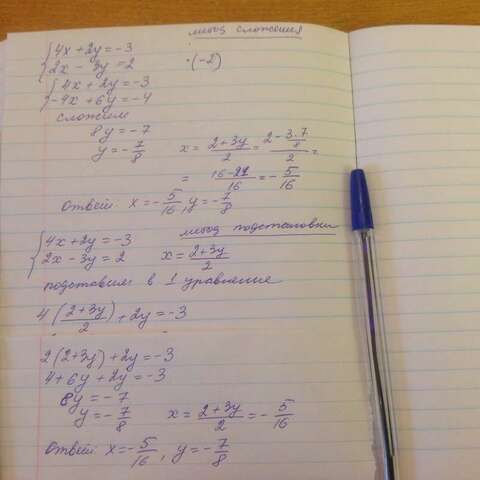 метод сложения
{4x + 2y = -3
2x - 3y = 2 ·(-2)
{4x + 2y = -3
-4x + 6y = -4
сложим
8y = -7
y = -7/8 x = (2+3y)/2 = (2-3·7/8)/2 =
= (16-21)/16 = -5/16
Ответ: x = -5/16, y = -7/8
метод подстановки
{4x + 2y = -3
2x - 3y = 2 x = (2+3y)/2
подставим в 1 уравнение
4((2+3y)/2) + 2y = -3
2(2+3y) + 2y = -3
4 + 6y + 2y = -3
8y = -7
y = -7/8 x = (2+3y)/2 = -5/16
Ответ: x = -5/16, y = -7/8